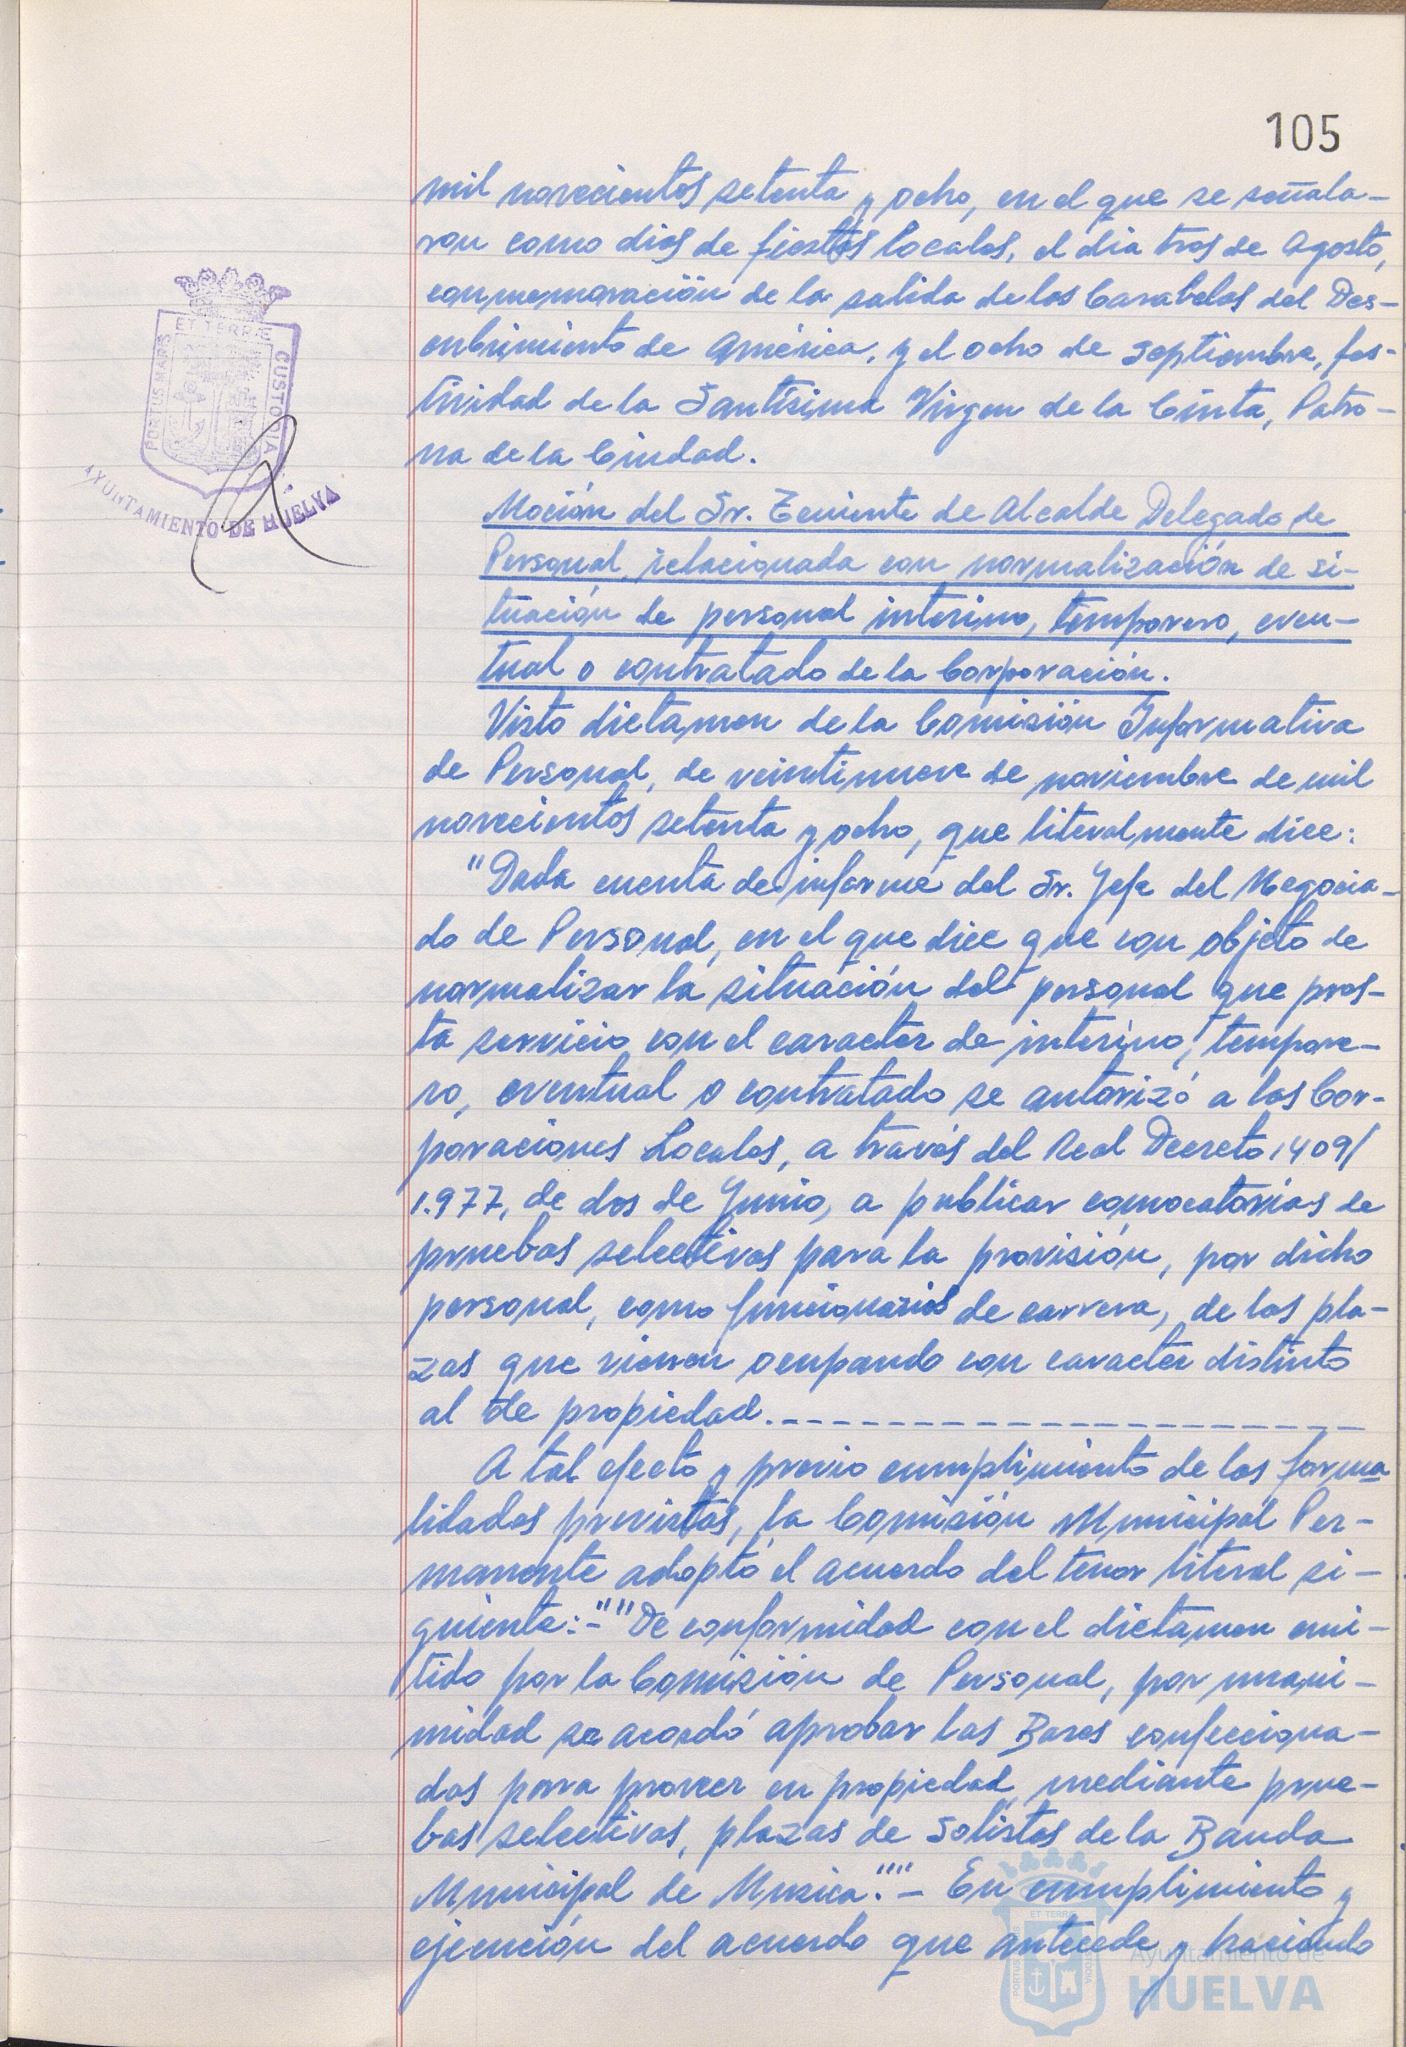 105
mil novecientos setenta y ocho, en el que se señala-
ron como dias de fiestas locales, el dia tres de Agosto,
conmemoración de la salida de las Carabelas del Des-
cubrimiento de América, y el ocho de septiembre, fes-
tividad de la Santísima Virgen de la Cinta, Patro-
na de la Ciudad.
ET TERRÆ
PORTUS MARIS
CUSTODIA
AYUNTAMIENTO DE HUELVA
Moción del Sr. Teniente de Alcalde Delegado de
Personal, relacionada con normalización de si-
tuación de personal interino, temporero, even-
tual o contratado de la Corporación.
Visto dictamen de la Comisión Informativa
de Personal, de veintinueve de noviembre de mil
novecientos setenta y ocho, que literalmente dice:
"Dada cuenta de informe del Sr. Jefe del Negocia-
do de Personal, en el que dice que con objeto de
normalizar la situación del personal que pres-
ta servicio con el caracter de interino, tempore-
ro, eventual o contratado se autorizó a las Cor-
poraciones Locales, a través del Real Decreto 1409/
1.977, de dos de Junio, a publicar convocatorias de
pruebas selectivas para la provisión, por dicho
personal, como funcionarios de carrera, de las pla-
zas que vienen ocupando con caracter distinto
al de propiedad.
A tal efecto y previo cumplimiento de las forma
lidades previstas, la Comisión Municipal Per-
manente adoptó el acuerdo del tenor literal si-
guiente:-""De conformidad con el dictamen emi-
tido por la Comisión de Personal, por unani-
midad se acordó aprobar las Bases confecciona-
das para proveer en propiedad, mediante prue-
bas selectivas, plazas de Solistas de la Banda
Municipal de Musica."".- En cumplimiento y
ejecución del acuerdo que antecede y haciendo
ET TERRÆ
PORTUS
CUSTODIA
Ayuntamiento de
HUELVA